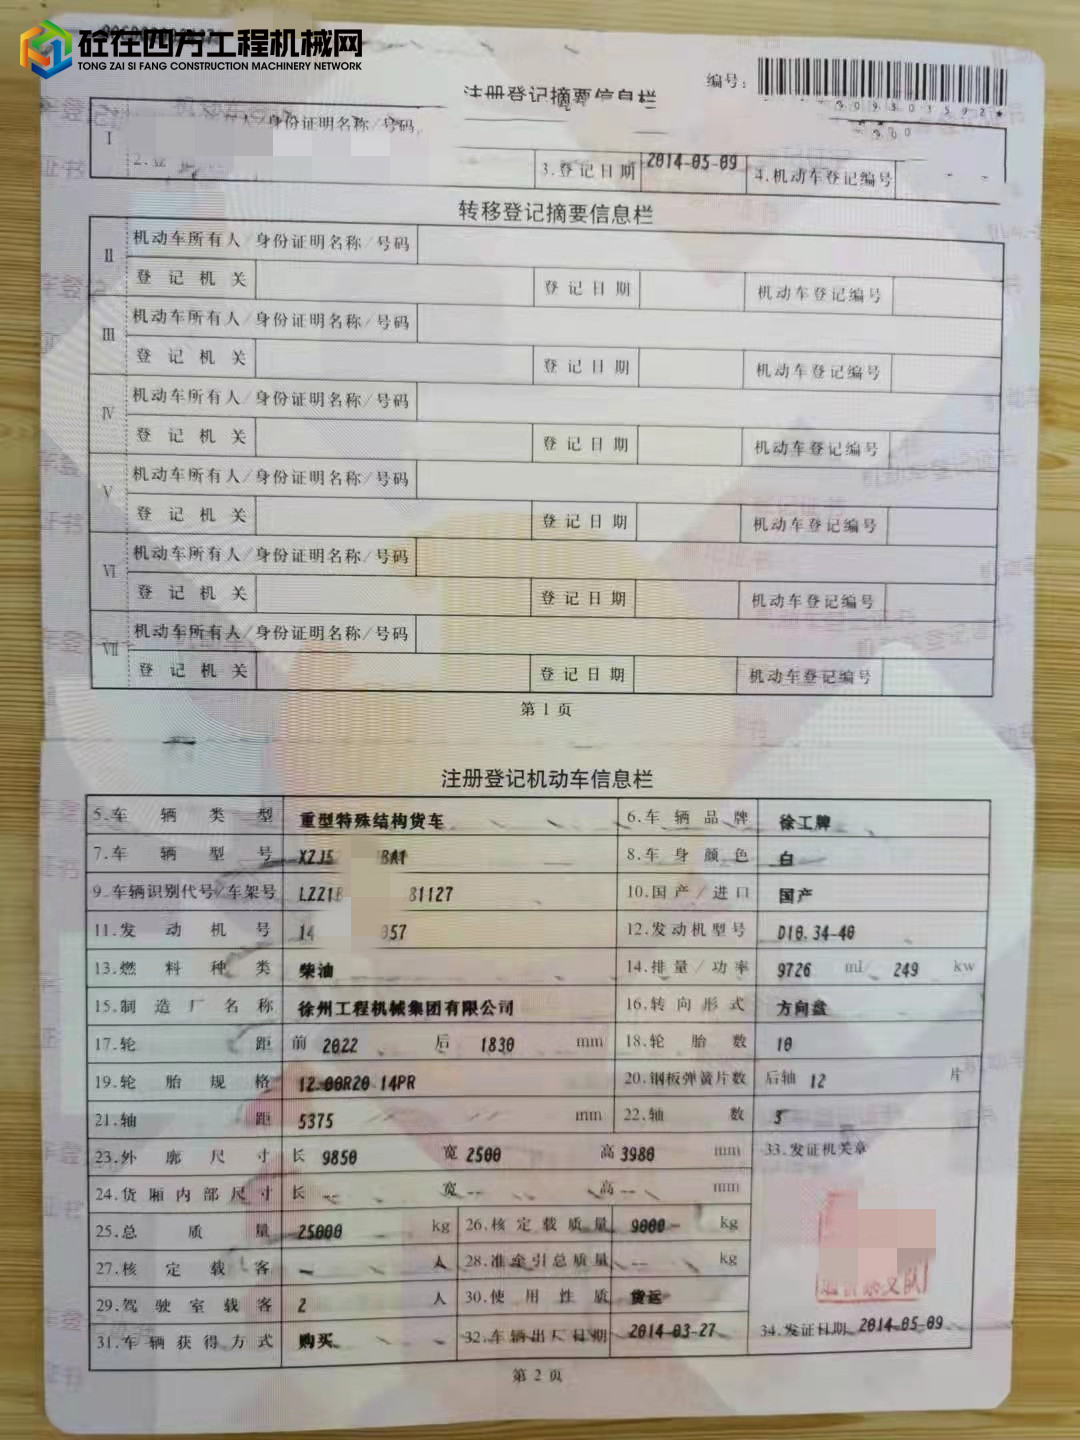 砼在四方工程机械网
TONG ZAI SI FANG CONSTRUCTION MACHINERY NETWORK
编号:
注册登记摘要信息栏
I 人/身份证明名称/号码
2.登 3.登记日期 2014-05-09 4.机动车登记编号
转移登记摘要信息栏
II 机动车所有人/身份证明名称/号码
登记机关 登记日期 机动车登记编号
III 机动车所有人/身份证明名称/号码
登记机关 登记日期 机动车登记编号
IV 机动车所有人/身份证明名称/号码
登记机关 登记日期 机动车登记编号
V 机动车所有人/身份证明名称/号码
登记机关 登记日期 机动车登记编号
VI 机动车所有人/身份证明名称/号码
登记机关 登记日期 机动车登记编号
VII 机动车所有人/身份证明名称/号码
登记机关 登记日期 机动车登记编号
第1页
注册登记机动车信息栏
5.车辆类型 重型特殊结构货车 6.车辆品牌 徐工牌
7.车辆型号 XZJ5 BA1 8.车身颜色 白
9.车辆识别代号/车架号 LZZ1B 81127 10.国产/进口 国产
11.发动机号 14 057 12.发动机型号 D10.34-40
13.燃料种类 柴油 14.排量/功率 9726 ml/ 249 kw
15.制造厂名称 徐州工程机械集团有限公司 16.转向形式 方向盘
17.轮距 前 2022 后 1830 mm 18.轮胎数 10
19.轮胎规格 12.00R20 14PR 20.钢板弹簧片数 后轴 12 片
21.轴距 5375 mm 22.轴数 3
23.外廓尺寸 长 9850 宽 2500 高 3980 mm 33.发证机关章
24.货厢内部尺寸 长 -- 宽 -- 高 -- mm
25.总质量 25000 kg 26.核定载质量 9000 kg
27.核定载客 -- 人 28.准牵引总质量 -- kg
29.驾驶室载客 2 人 30.使用性质 货运
31.车辆获得方式 购买 32.车辆出厂日期 2014-03-27 34.发证日期 2014-05-09
第2页